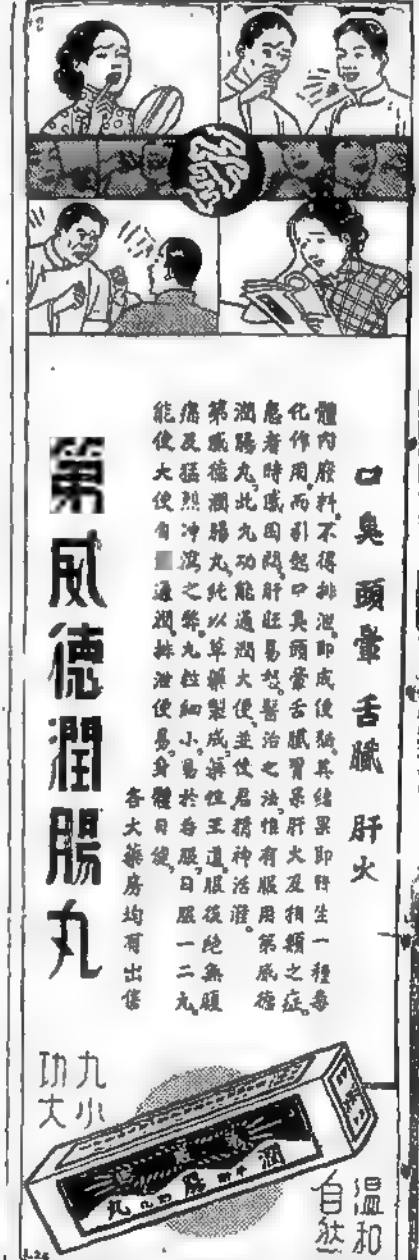 口臭 頭暈 舌膩 肝火
體內廢料不得排泄即成後秘其結果即野生一種毒
化作用而引起口臭頭暈舌膩胃呆肝火及相類之症
患者時感困悶肝旺易怒醫治之法惟有服用第威德
潤腸丸此丸功能通潤大便並使君精神活潑
第威德潤腸丸純以草藥製成藥性王道服後絕無腹
痛及猛烈沖瀉之弊丸粒細小易於吞服日服一二丸
能使大便自通潤排泄便易身體日健
各大藥房均有出售
第威德潤腸丸
丸小
功大
溫和
自然
L26